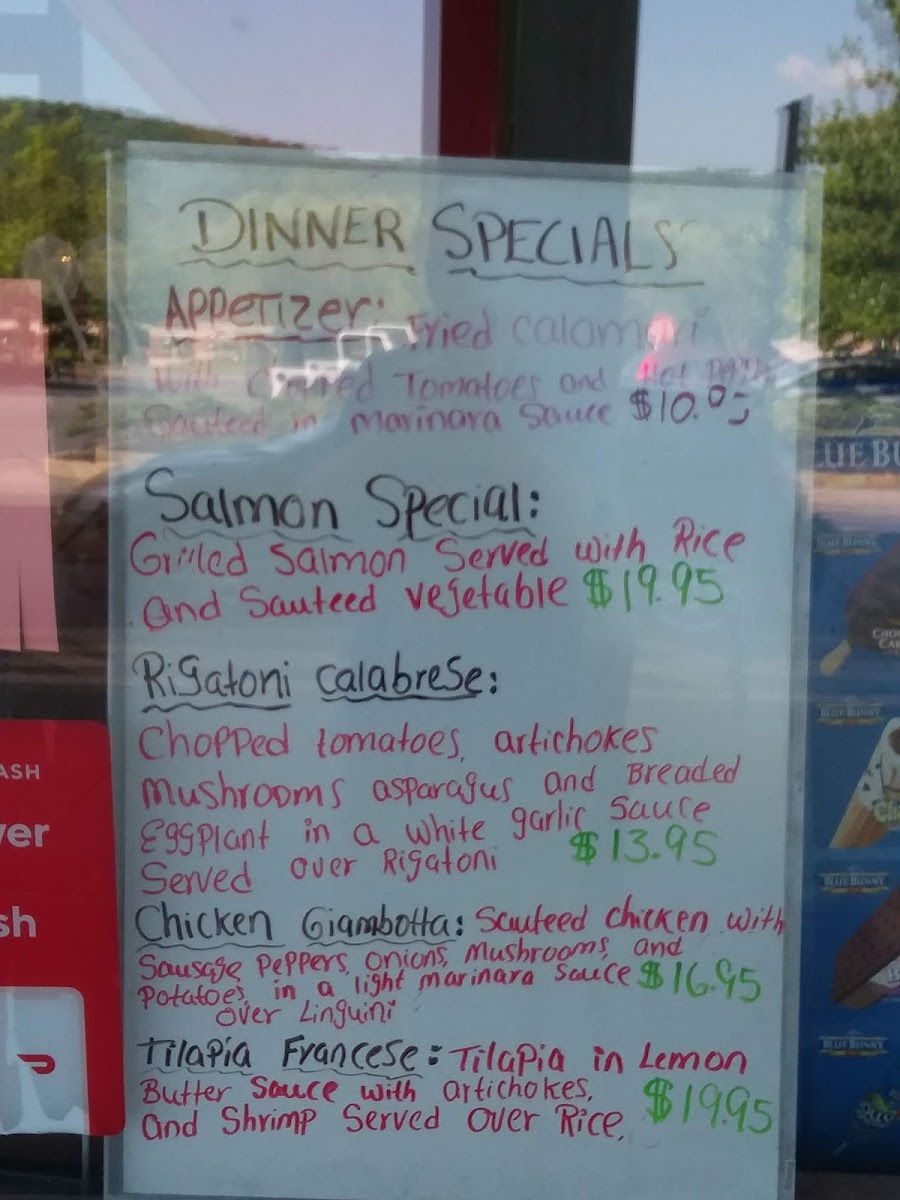 DINNER SPECIALS
Appetizer: Fried calamari
with Tomatoes and Hot
Sauteed in marinara Sauce $10.95
Salmon Special:
Grilled Salmon Served with Rice
and Sauteed vegetable $19.95
Rigatoni Calabrese:
Chopped tomatoes, artichokes
mushrooms asparagus and Breaded
Eggplant in a white garlic Sauce
Served over Rigatoni $13.95
Chicken Giambotta: Sauteed chicken with
Sausage Peppers, onions, mushrooms, and
Potatoes, in a light marinara Sauce $16.95
over Linguini
Tilapia Francese: Tilapia in Lemon
Butter Sauce with artichokes,
and Shrimp Served over Rice, $19.95
ASH
ver
sh
LUE BU
BLUE BUNNY
BLUE BUNNY
BLUE BUNNY
BLUE BUNNY